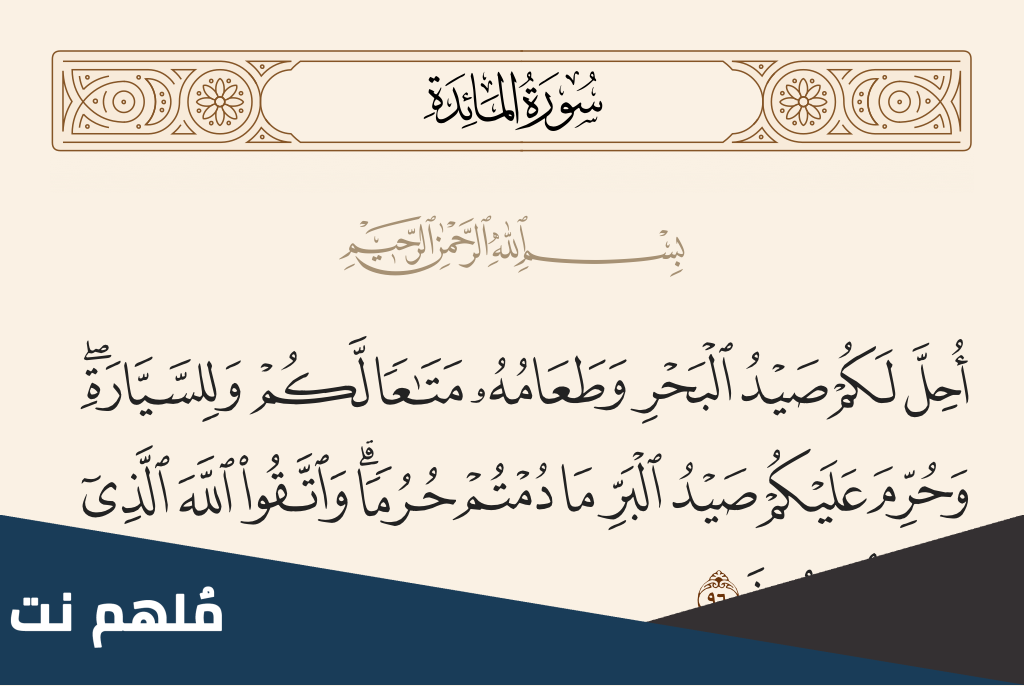 سُورَةُ المَائِدَةِ
بِسْمِ ٱللَّهِ ٱلرَّحْمَٰنِ ٱلرَّحِيمِ
أُحِلَّ لَكُمْ صَيْدُ ٱلْبَحْرِ وَطَعَامُهُۥ مَتَٰعًا لَّكُمْ وَلِلسَّيَّارَةِۖ
وَحُرِّمَ عَلَيْكُمْ صَيْدُ ٱلْبَرِّ مَا دُمْتُمْ حُرُمًاۗ وَٱتَّقُوا۟ ٱللَّهَ ٱلَّذِىٓ
٩٦
مُلهم نت